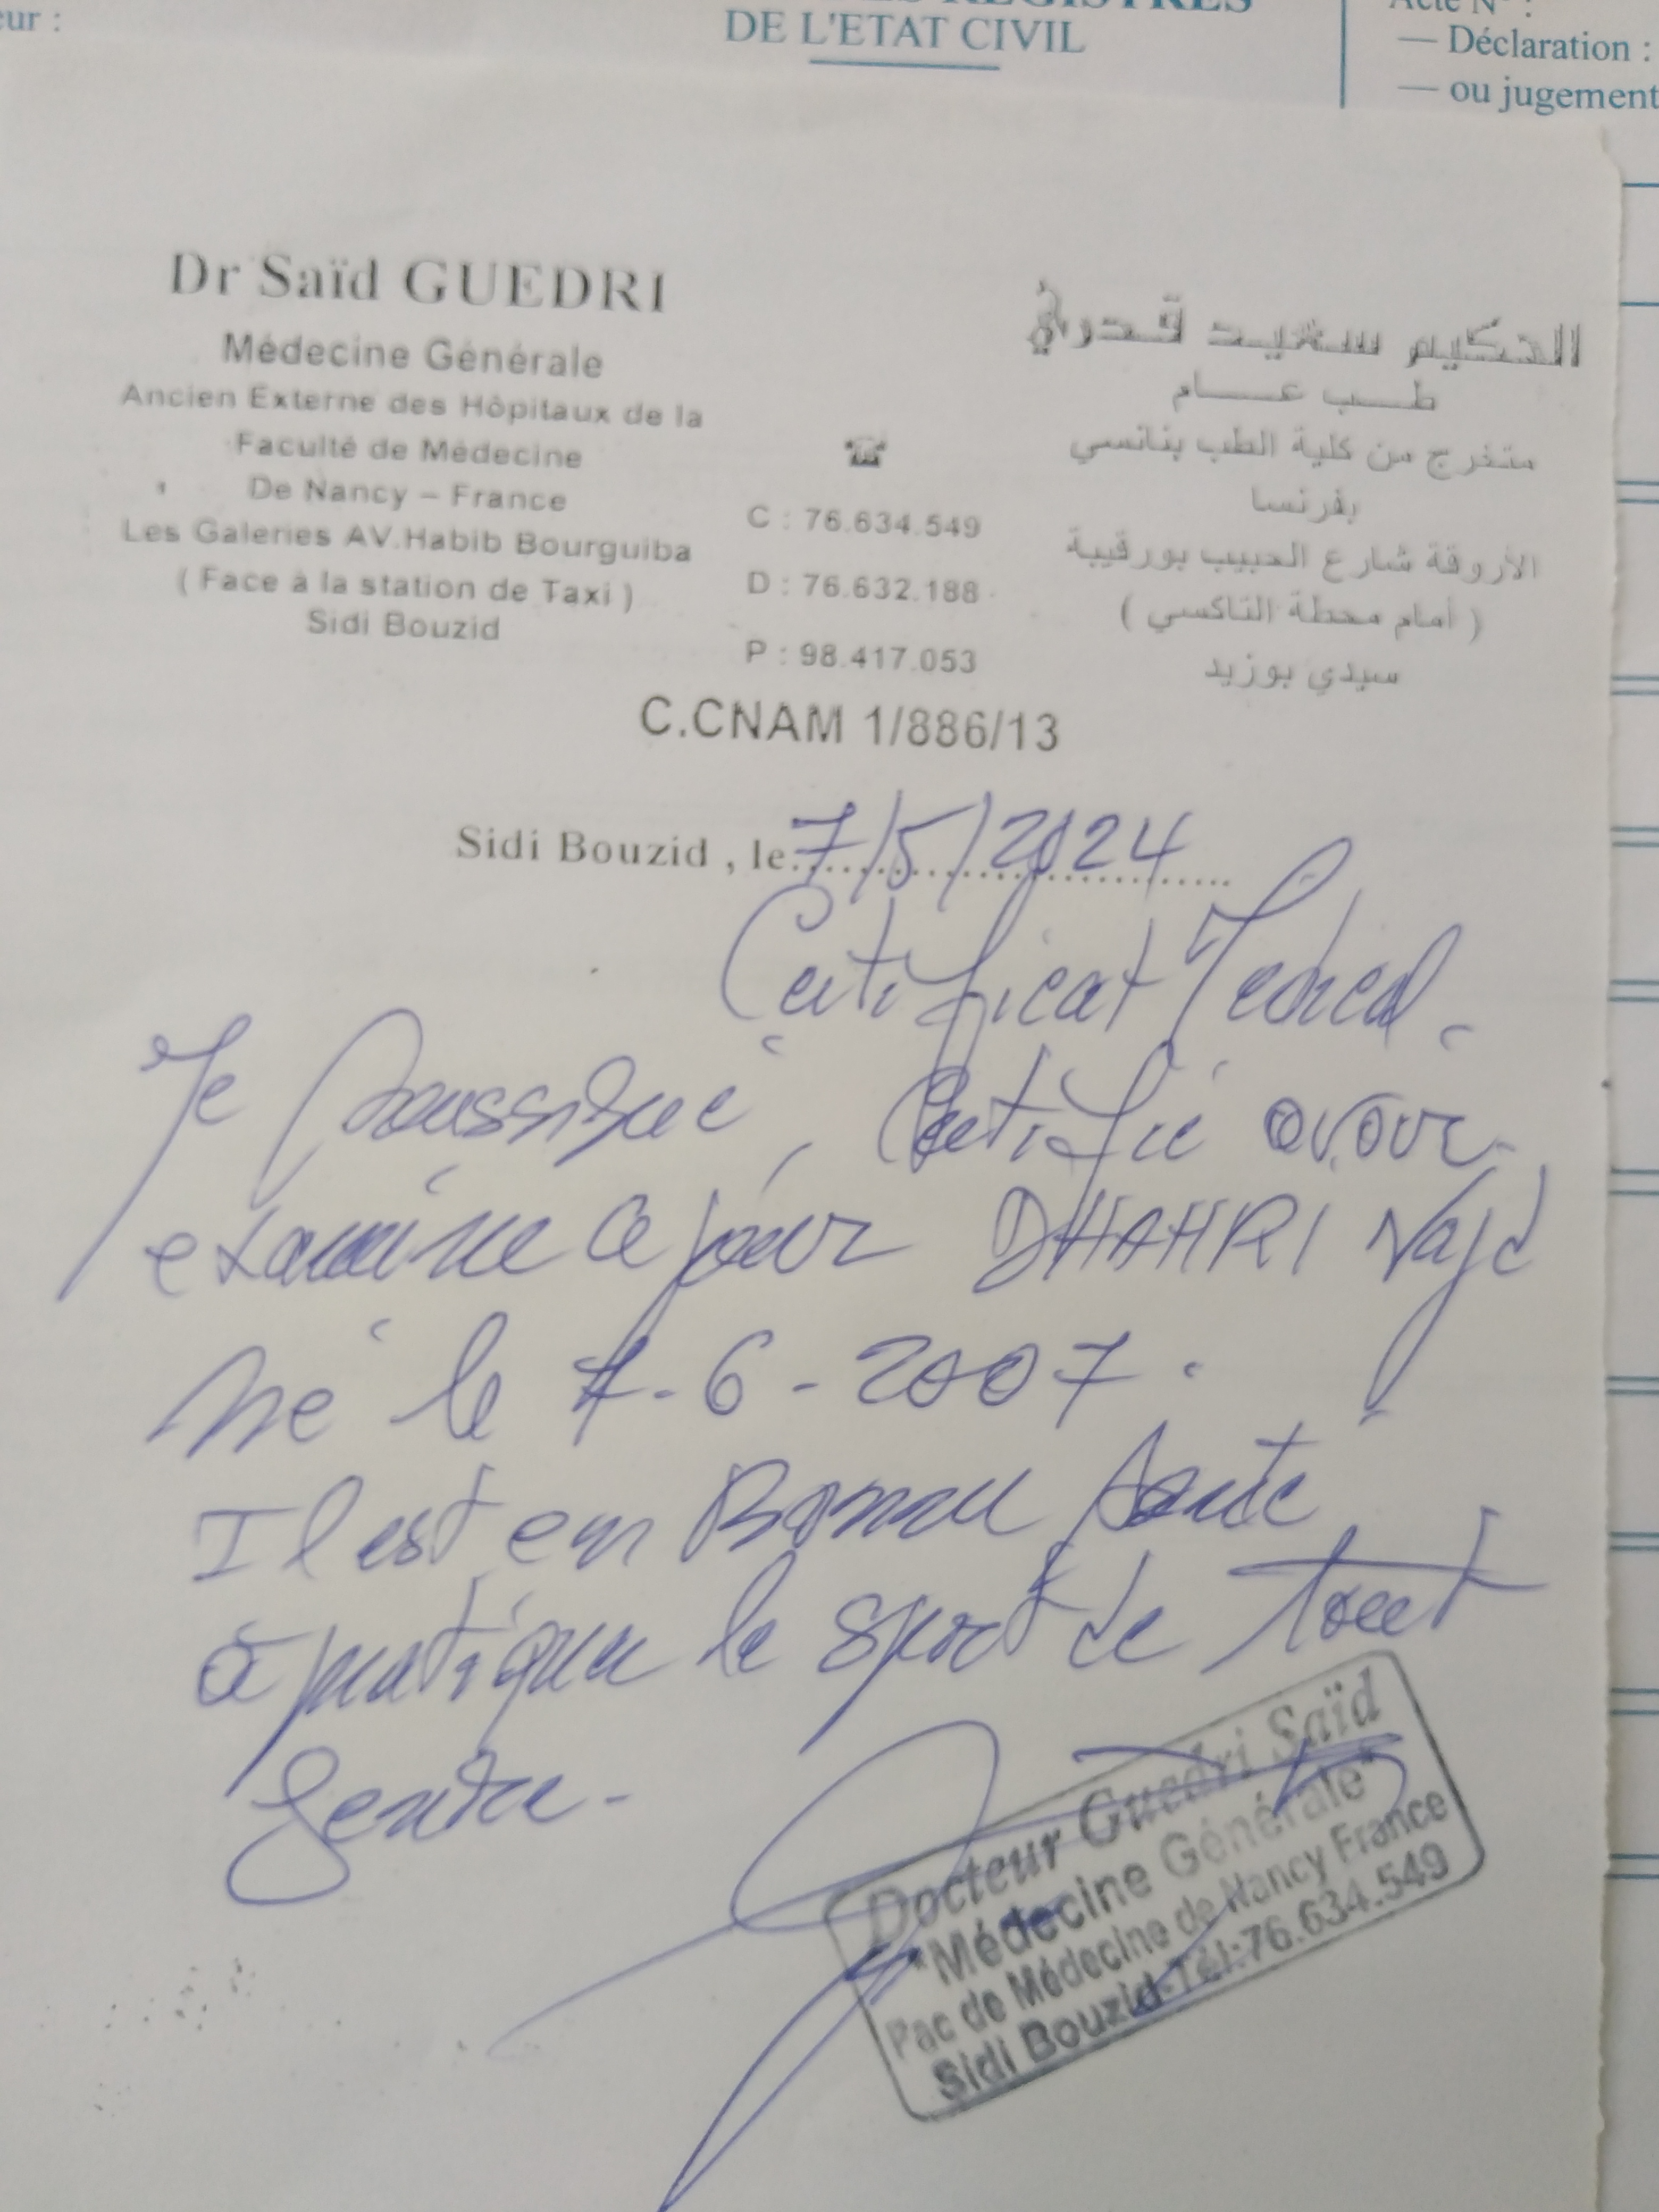 eur :
REGISTRES
DE L'ETAT CIVIL
Acte N° :
— Déclaration :
— ou jugement
Dr Saïd GUEDRI
Médecine Générale
Ancien Externe des Hôpitaux de la
Faculté de Médecine
De Nancy – France
Les Galeries AV.Habib Bourguiba
( Face à la station de Taxi )
Sidi Bouzid
☎
C : 76.634.549
D : 76.632.188
P : 98.417.053
الحكيم سعيد قدري
طب عام
متخرج من كلية الطب بنانسي
بفرنسا
الأروقة شارع الحبيب بورقيبة
( أمام محطة التاكسي )
سيدي بوزيد
C.CNAM 1/886/13
Sidi Bouzid , le 7/5/2024
Certificat Medical.
Je soussigné, Certifié avoir
examiné ce jour DHAHRI Najd
né le 7-6-2007.
Il est en Bonne santé
à pratiquer le sport de tout
Genre.
Docteur Guedri Saïd
"Médecine Générale"
Fac de Médecine de Nancy France
Sidi Bouzid-Tél:76.634.549